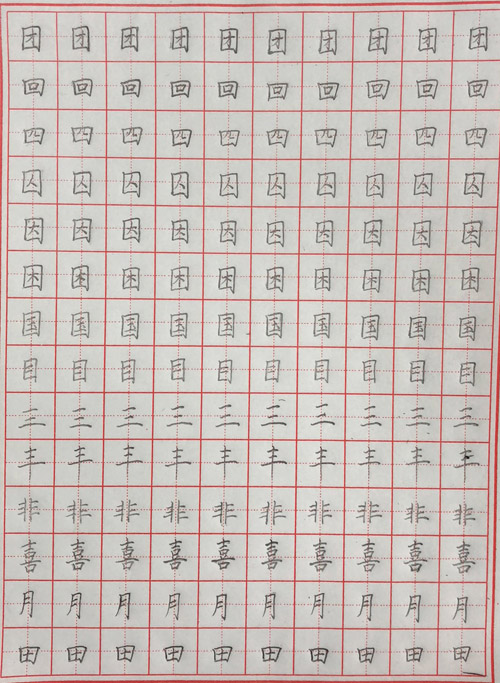 团团团团团团团团团团
回回回回回回回回回回
四四四四四四四四四四
囚囚囚囚囚囚囚囚囚囚
因因因因因因因因因因
困困困困困困困困困困
国国国国国国国国国国
目目目目目目目目目目
三三三三三三三三三三
丰丰丰丰丰丰丰丰丰丰
非非非非非非非非非非
喜喜喜喜喜喜喜喜喜喜
月月月月月月月月月月
田田田田田田田田田田